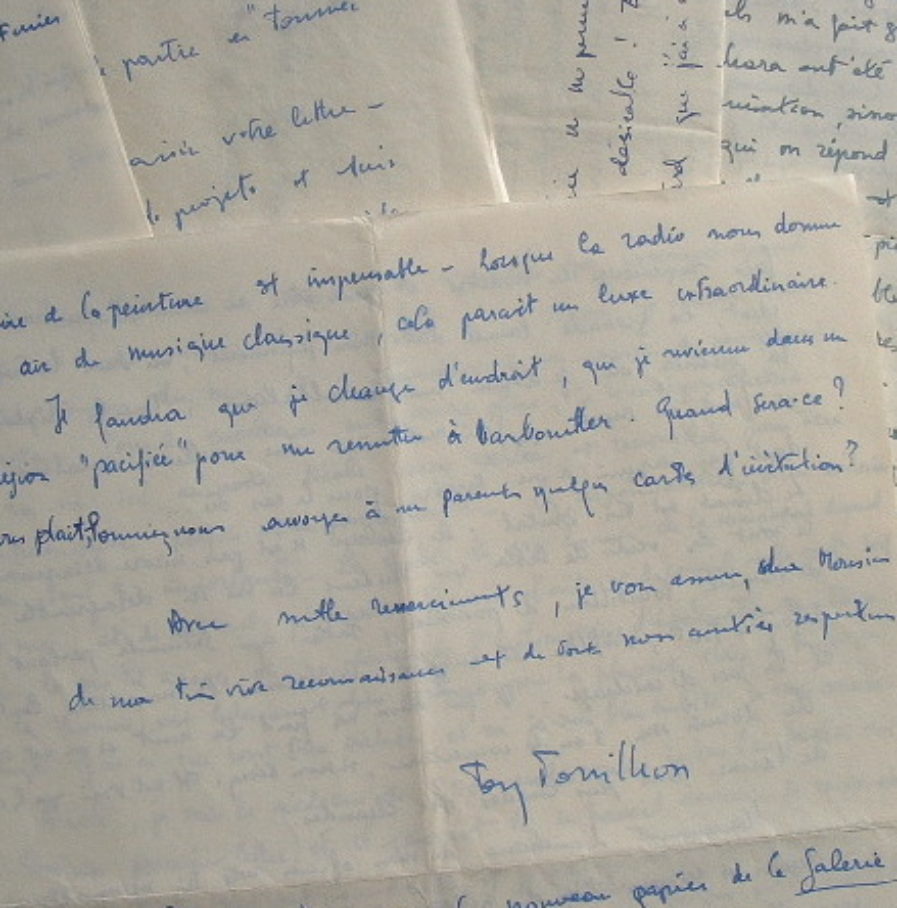 Fevrier
partir en "tournée
avoir votre lettre -
de projets et suis
désirable !
que j'ai
m'a fait
ont été
sinon
qui on répond
et
de la peinture est impensable - Lorsque la radio nous donne
air de musique classique, cela parait un luxe extraordinaire.
Il faudra que je change d'endroit, que je revienne dans un
région "pacifiée" pour me remettre à barbouiller. Quand sera-ce ?
plait, envoyer à mes parents quelques cartes d'invitation ?
Avec mille remerciements, je vous assure, cher Monsieur
de ma très vive reconnaissance et de toutes mes amitiés respectueuses
Tony Tonillon
nouveau papier de la Galerie